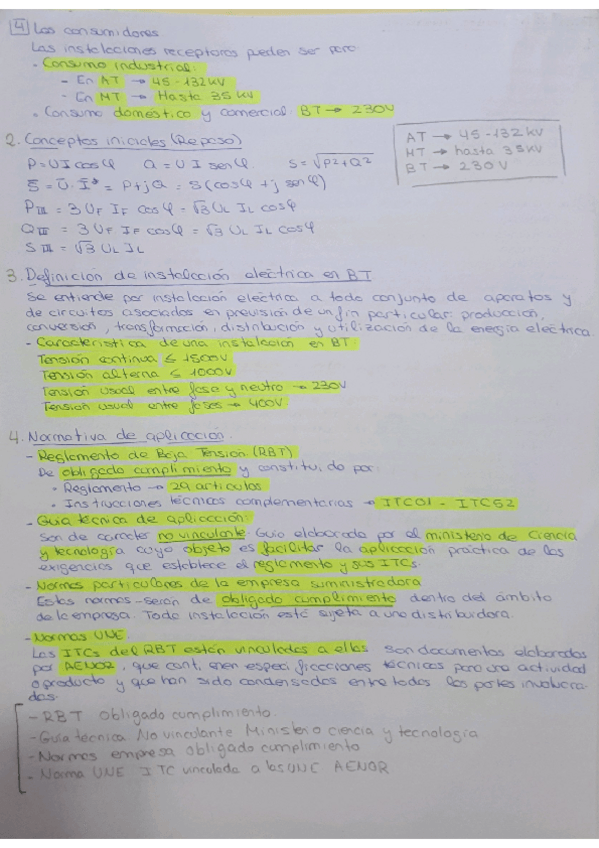 4 Los consumidores
Las instalaciones receptoras pueden ser para
- Consumo industrial:
- En AT → 45-132 kV
- En MT → Hasta 35 kV
• Consumo doméstico y comercial: BT → 230V
AT → 45-132 kV
MT → hasta 35kV
BT → 230V
2. Conceptos iniciales (Repaso)
P=UI cosφ Q = U I senφ S = √P²+Q²
S̄ = Ū · Ī* = P+jQ = S(cosφ + j senφ)
P III = 3 UF IF cosφ = √3 UL IL cosφ
Q III = 3 UF IF cosφ = √3 UL IL cosφ
S III = √3 UL IL
3. Definición de instalación eléctrica en BT
Se entiende por instalación eléctrica a todo conjunto de aparatos y
de circuitos asociados en previsión de un fin particular: producción,
conversión, transformación, distribución y utilización de la energía eléctrica.
- Característica de una instalación en BT:
Tensión continua ≤ 1500V
Tensión alterna ≤ 1000V
Tensión usual entre fase y neutro → 230V
Tensión usual entre fases → 400V
4. Normativa de aplicación.
- Reglamento de Baja Tensión (RBT)
De obligado cumplimiento y constituido por:
• Reglamento → 29 artículos
• Instrucciones técnicas complementarias → ITC01 - ITC52
- Guía técnica de aplicación:
Son de carácter no vinculante. Guía elaborada por el ministerio de Ciencia
y tecnología cuyo objeto es facilitar la aplicación práctica de las
exigencias que establece el reglamento y sus ITCs.
- Normas particulares de la empresa suministradora
Estas normas serán de obligado cumplimiento dentro del ámbito
de la empresa. Toda instalación está sujeta a una distribuidora.
- Normas UNE.
Las ITCs del RBT están vinculadas a ellas son documentos elaborados
por AENOR, que contienen especificaciones técnicas para una actividad
o producto y que han sido condensadas entre todas las partes involucra-
das.
- RBT obligado cumplimiento.
- Guía técnica No vinculante Ministerio ciencia y tecnología
- Normas empresa obligado cumplimiento
- Norma UNE ITC vinculada a las UNE AENOR